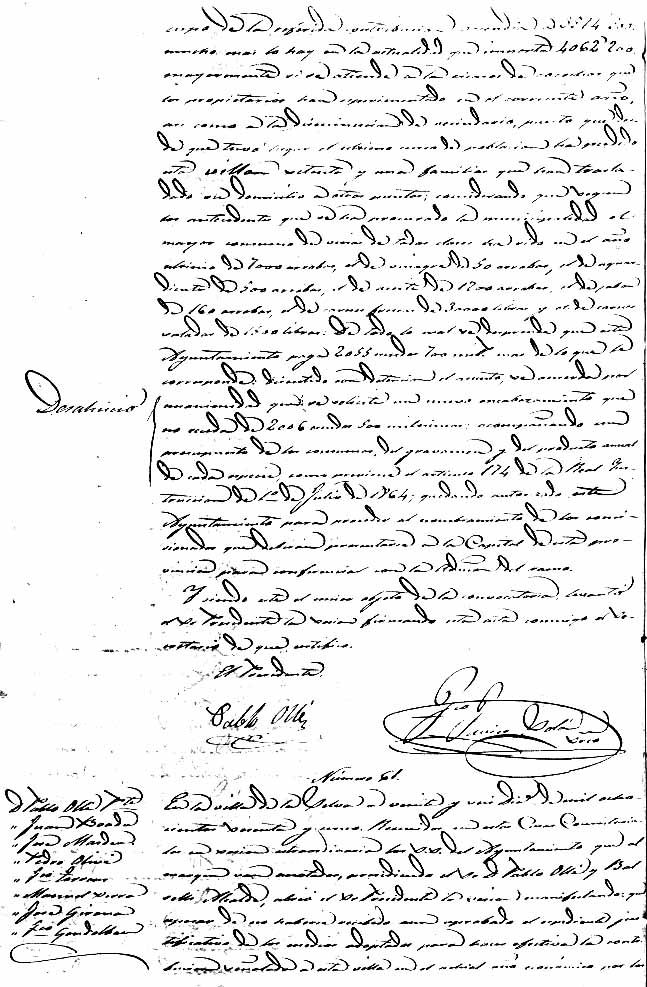 cupo de la referida contribucion
mucho mas lo hay en la actualidad que importa 4062
mayormente si se atiende a la escases de cosechas que
los propietarios han esperimentado en el corriente año,
asi como a la disminucion de vecindario, puesto que des-
de que tuvo lugar el ultimo censo de poblacion ha perdido
esta villa veinte y una familias que han trasla-
dado su domicilio a otros puntos; considerando que segun
los antecedentes que se ha procurado la municipalidad el
mayor consumo de vino de todas clases ha sido en el año
ultimo de 7000 arrobas, el de vinagre de 50 arrobas, el de aguar-
diente de 500 arrobas, el de aceite de 1200 arrobas, el de jabon
de 160 arrobas, el de carnes frescas de 30000 libras y el de carnes
saladas de 1500 libras. De todo lo cual se desprende que este
Ayuntamiento paga 2055 escudos 700 mil.s mas de lo que le
corresponde; discutido con detencion el asunto, se acuerda por
Desahucio
unanimidad que se solicite un nuevo encabezamiento que
no esceda de 2006 escudos 500 milesimas; acompañando un
presupuesto de los consumos, del gravamen y del producto anual
de cada especie, como previene el articulo 174 de la Real Ins-
truccion de 1º de Julio de 1864; quedando autorizado este
Ayuntamiento para proceder al nombramiento de los comi-
sionados que deberan presentarse a la Capital de esta pro-
vincia para conferenciar con la Admon del ramo.
Y siendo este el unico objeto de la convocatoria levantó
el Sr Presidente la sesion firmando esta acta conmigo el Se-
cretario de que certifico.
El Presidente
Pablo Ollé
Srio
Número 61.
D. Pablo Ollé Pte
" Juan
" José
" Pedro Olivé
" Jose
" Manuel
" José Girona
" Jose
En la villa de la Selva a veinte y seis de mil ocho-
cientos sesenta y Reunidos en esta Casa Consistoria-
l en sesion extraordinaria los S.S. del Ayuntamiento que al
margen van anotados, presididos el Sr D. Pablo Ollé y
abrió el Sr Presidente la sesion manifestando: que
apesar de no haberse recibido aun aprobado el espediente jus-
tificativo de los medios adoptados para hacer efectiva la contri-
bucion señalada a esta villa en el actual año económico por los